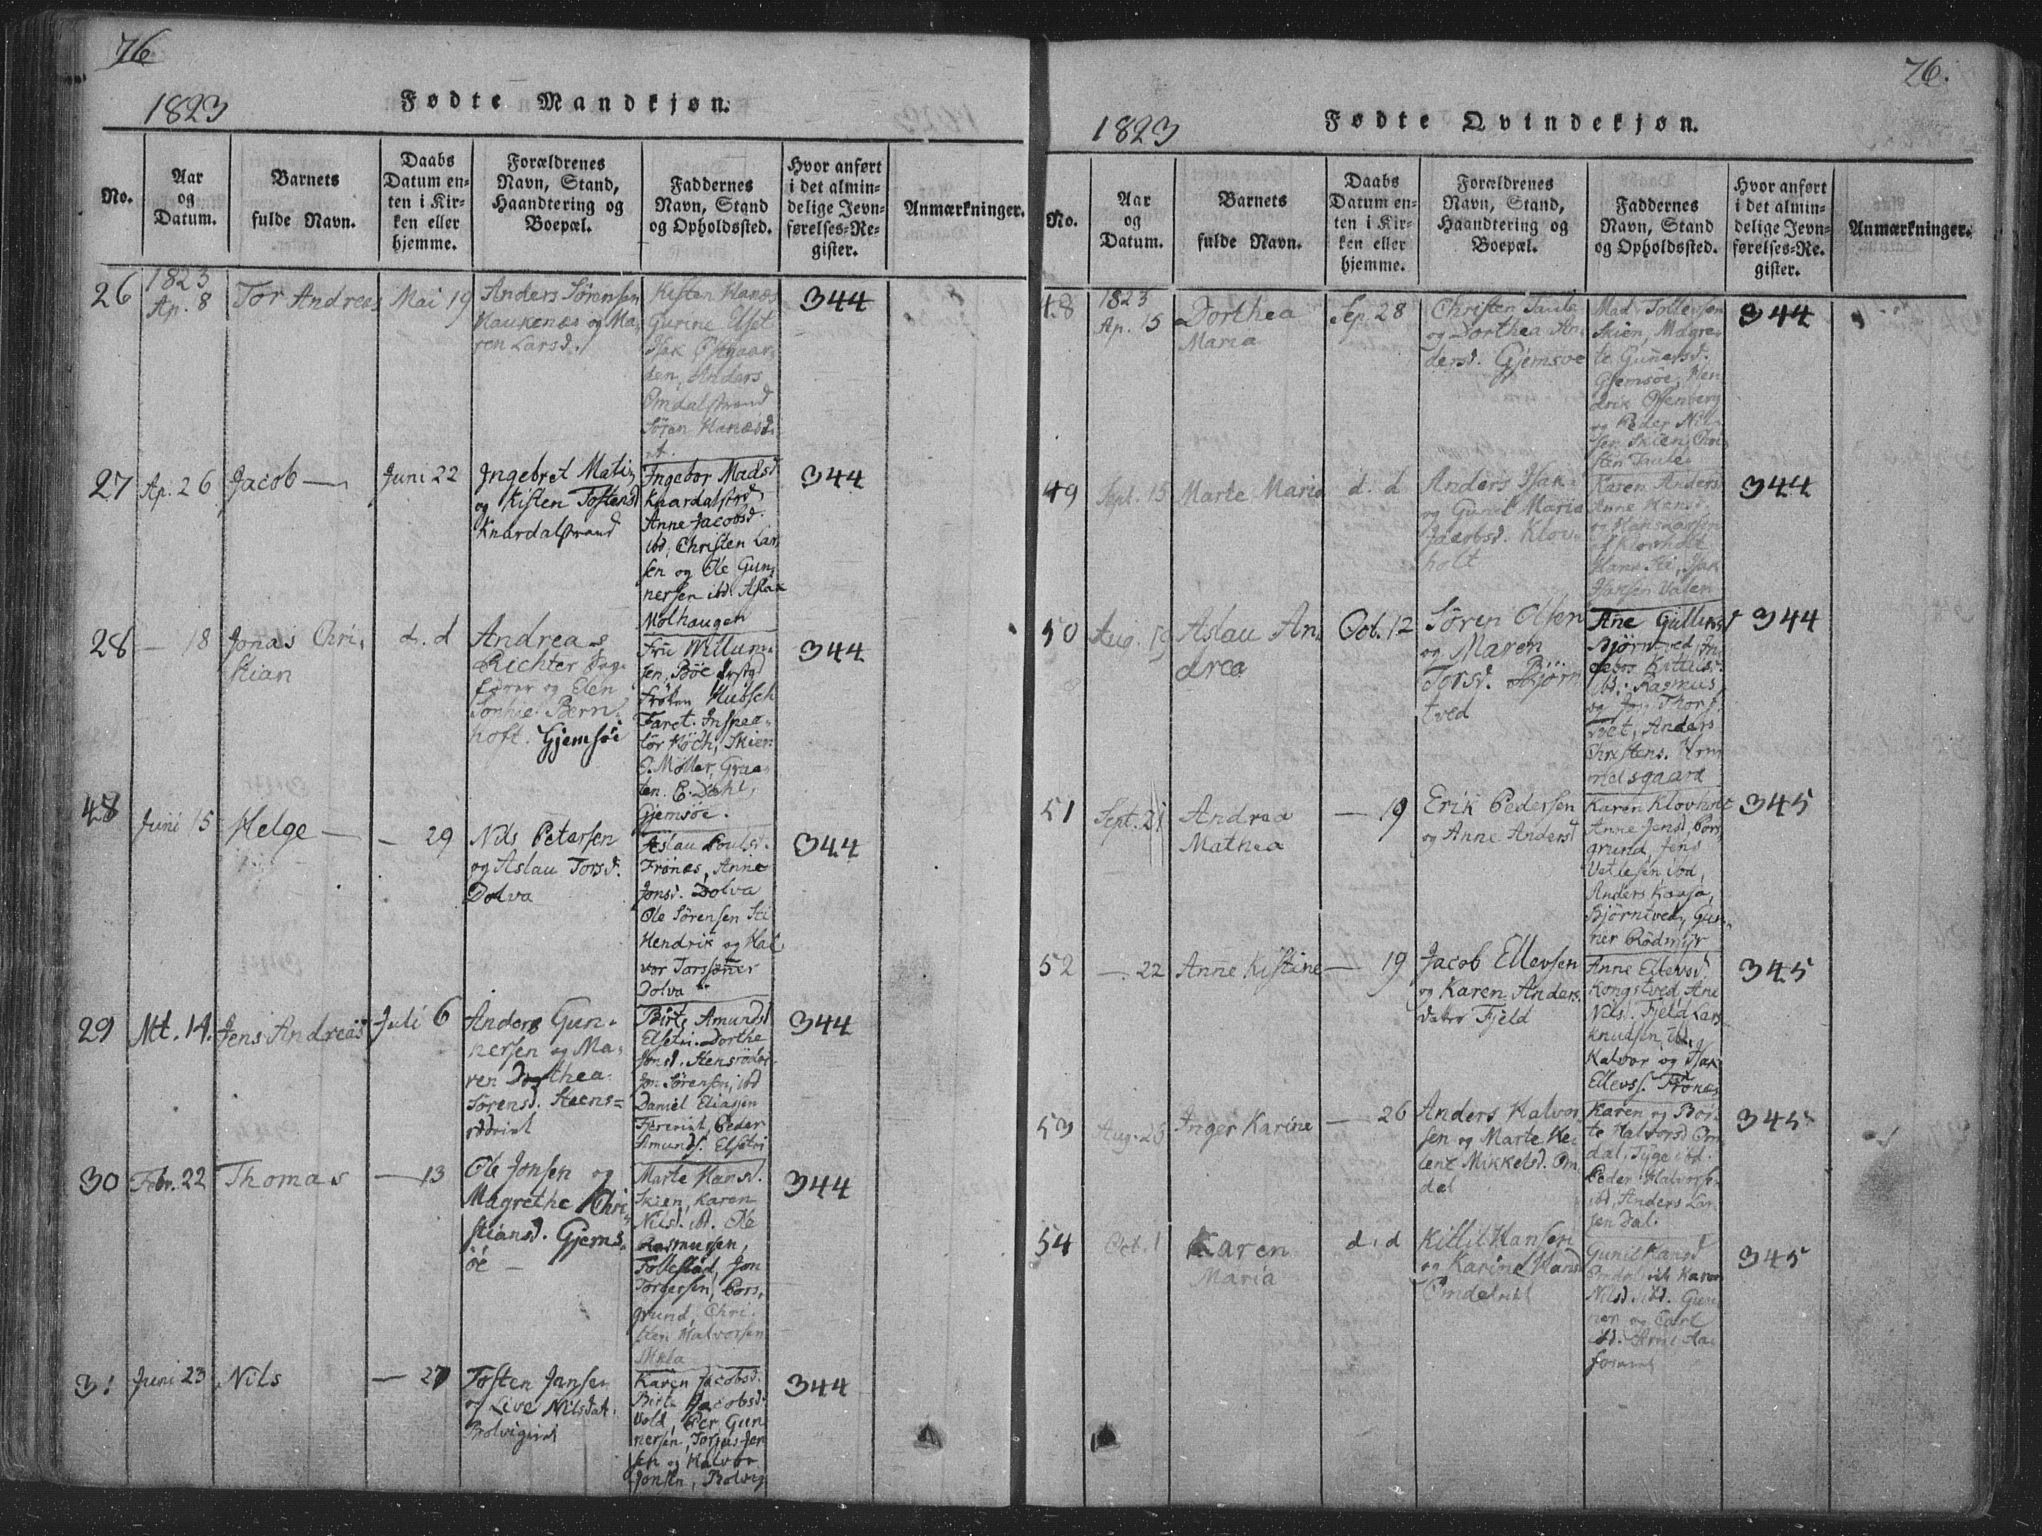 76
1823
Fødte Mandkjøn.
No.
Aar
og
Datum.
Barnets
fulde Navn.
Daabs
Datum en-
ten i Kir-
ken eller
hjemme.
Forældrenes
Navn, Stand,
Haandtering og
Boepæl.
Faddernes
Navn, Stand
og Opholdssted.
Hvor anført
i det almin-
delige Jevn-
førelses-Re-
gister.
Anmærkninger.
26
1823
Ap. 8
Tor Andreas
Mai 19
Anders Sørensen
Haukenæs og Ma
ren Larsd.
Kisten Hanæs
Gurine
Isak
den, Anders
Omdalstrand
Søren
344
27
Ap. 26
Jacob —
Juni 22
Ingebret
og Kisten Tostensd
Knardalstrand
Ingebor Madsd
Knardalstrd
Anne Jacobsd.
ibd, Christen Lar
sen og Ole Gun
nersen ibd. Aslak
Molhaugen
344
28
— 18
Jonas Chri
stian
d. d
Andreas
Richter
og Elen
Sophie Bern
hoft. Gjemsöe
Fru Willum
sen, Böe
Frøken Hubsch
Faret. Inspec
tör Köch, Skien
E. Møller, Grue
ten. E. Dahl,
Gjemsöe.
344
48
Juni 15
Helge —
— 29
Nils Petersen
og Aslau Torsd.
Dolva
Aslau Poulsd.
Frönæs, Anne
Jonsd. Dolva
Ole Sørensen
Hendrik og Hal
vor Torssønner
Dolva
344
29
Mt. 14.
Jens Andreas
Juli 6
Anders Gun-
nersen og Ma-
ren Dorthea
Sørensd. Steens=
Birte Amundsd
Elsetri. Dorthe
Jonsd. Stensröder
Jon Sørensen, ibd
Daniel Eliassen
Peder
Amunds. Elsetri
344
30
Febr. 22
Thomas
— 13
Ole Jonsen og
Magrethe Chri
stiansd. Gjems
öe —
Marte Hansd.
Skien, Karen
Nilsd. ibd. Ole
Rasmussen,
Follestad, Jon
Torgersen, Pors
grund, Chri
sten Halvorsen
344
31
Juni 23
Nils
— 27
Tosten Jansen
og Live Nilsdat.
Karen Jacobsd.
Birte Jacobsd.
Vold, Per Gun
nersen, Torjus Jen
sen og Halvor
Jonsen, Bolvig
344
76.
1823
Fødte Qvindekjøn.
No.
Aar
og
Datum.
Barnets
fulde Navn.
Daabs
Datum en-
ten i Kir-
ken eller
hjemme.
Forældrenes
Navn, Stand,
Haandtering og
Boepæl.
Faddernes
Navn, Stand
og Opholdssted.
Hvor anført
i det almin-
delige Jevn-
førelses-Re-
gister.
Anmærkninger.
48
1823
Ap. 15
Dorthea
Maria
Sep. 28
Christen
og Dorthea An
dersd. Gjemsøe
Mad. Tollefsen
Skien, Magre
te Gunersd.
Gjemsöe, Hen
drik
og Peder Nil
sen Skien, Chri
sten
344
49
Sept. 15
Marte Maria
d. d
Anders Isak
og Gunil Maria
Jacobsd. Klov
holt
Karen Anders
Anne Hansd.
og Hans Larsen
af Klovholt
Isak
Hansen Valen
344
50
Aug. 19
Aslau An
drea
Oct. 12
Sören Olsen
og Maren
Torsd. Björn
tved
Ane Gullusd
Björntved, In
gebor Kittilsd.
ibd. Rasmus
og Thors
tvet, Anders
Christens.
melsgaard
344
51
Sept. 21
Andrea
Mathea
— 19
Erik Pedersen
og Anne Andersd
Karen Klovholt
Anne Jensd, Pors
grund, Jens
Vetlesen ibd,
Anders Kaasa,
Björntved, Gun
ner Rödmyr
345
52
— 22
Anne Kistine
— 19
Jacob Ellevsen
og Karen Anders
datter Fjeld
Anne Ellevsd
Kongstved Ane
Nilsd. Fjeld Lars
Knudsen, ibd.
Halvor og Isak
Ellevss. Frönæs
345
53
Aug. 25
Inger Karine
— 26
Anders Halvor
sen og Marte Ke
lene Mikkelsd. Om
dal
Karen og Bir
te Halvorsd Om
dal, ibd.
Peder Halvors.
ibd, Anders Lar
sen Dal.
345
54
Oct. 1
Karen
Maria
d. d
Kittil Hansen
og Karine Hansd
Gunil Hansd
Karen
Nilsd. ibd. Gun
ner og Carl
ibd. Arne
345